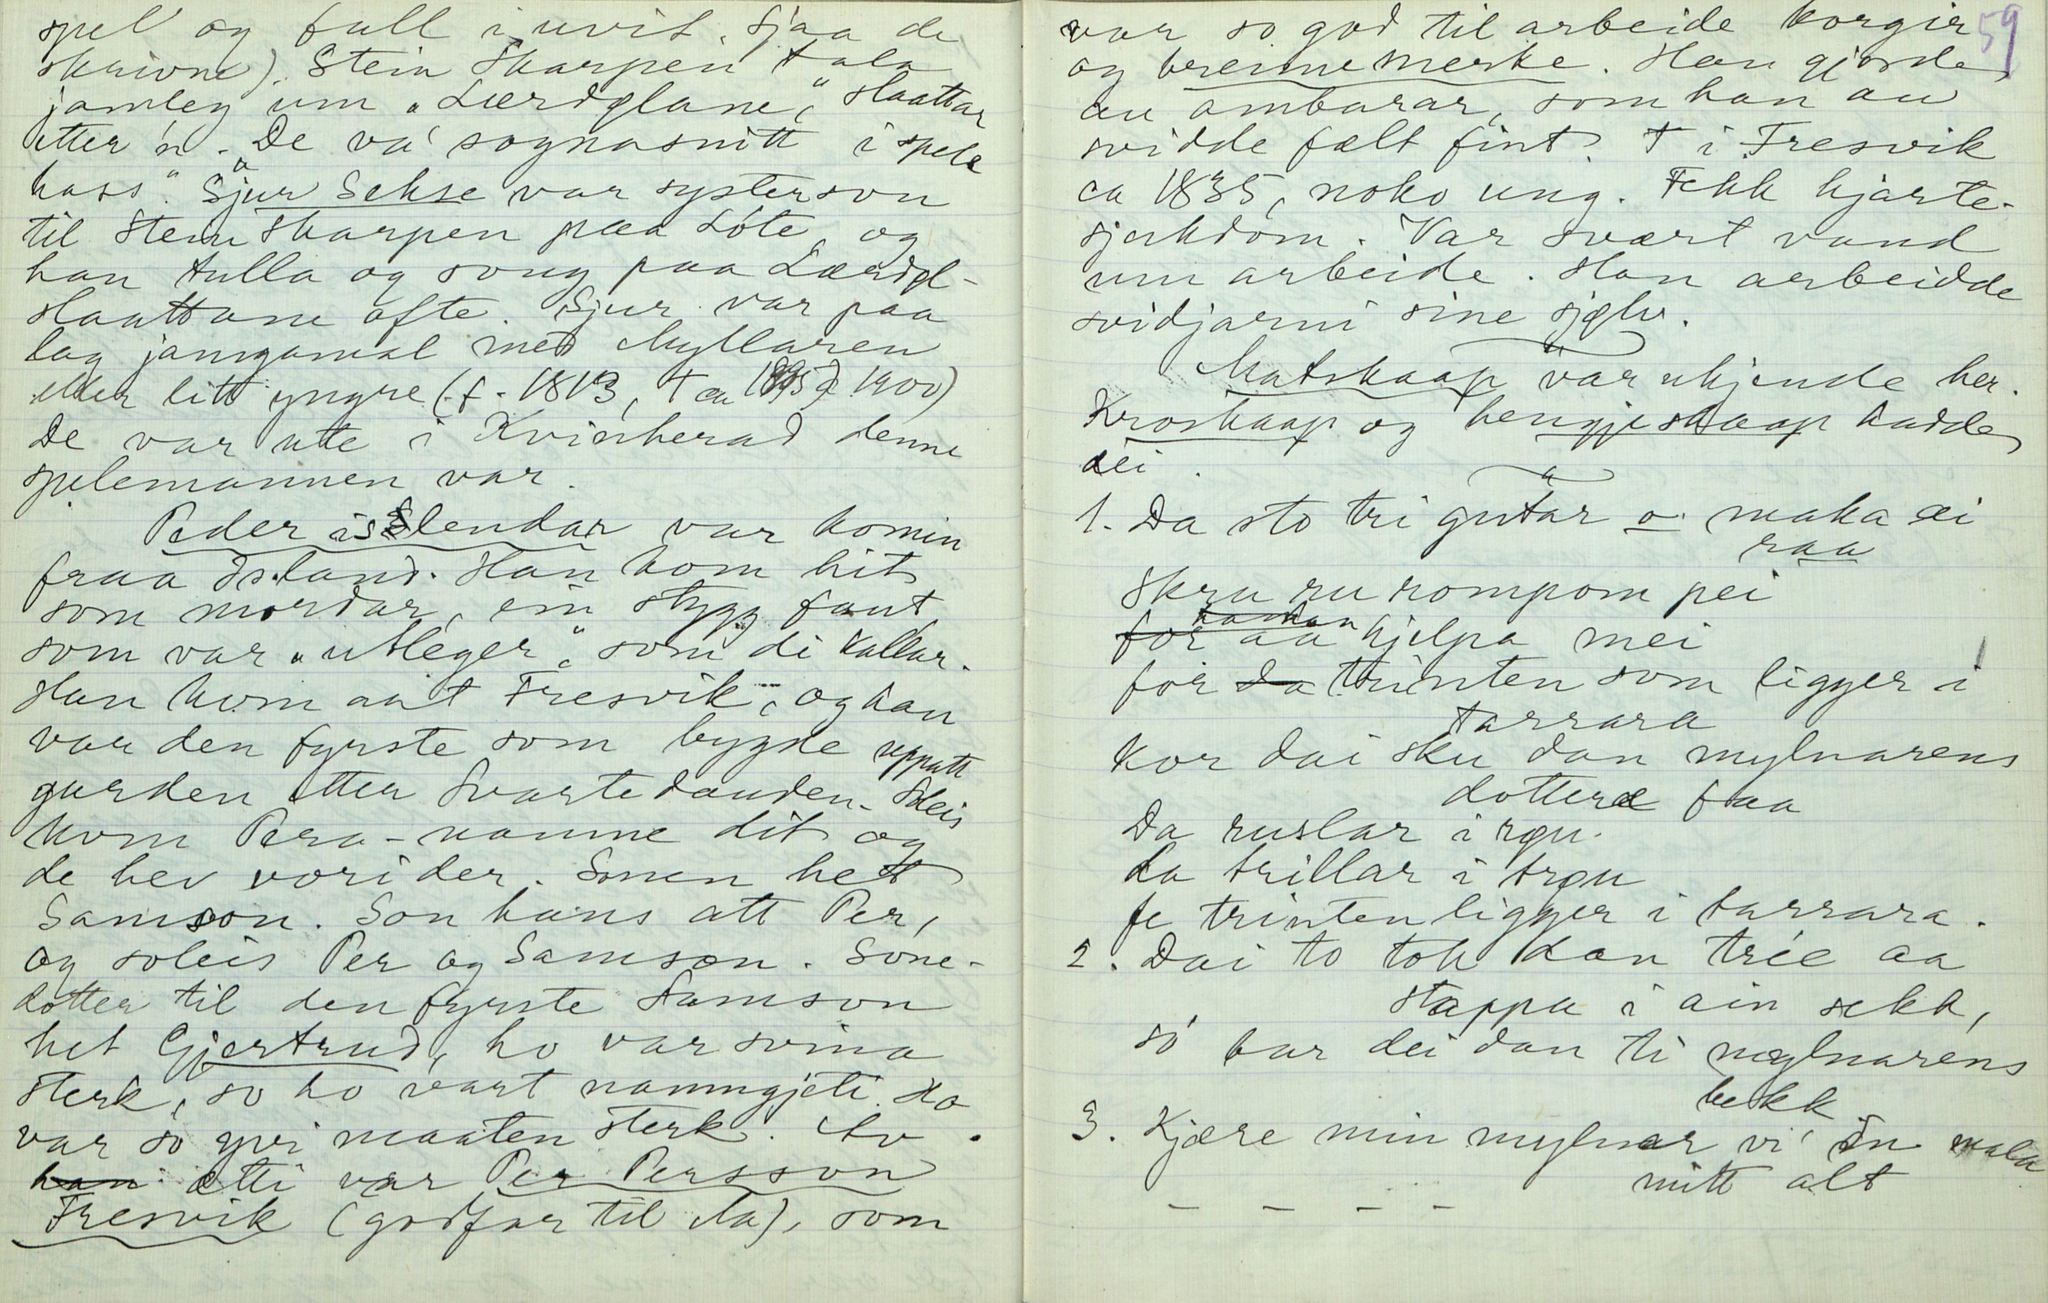 spel og fall i uvit. Sjaa de
skrivne). Stein Skarpen tala
jamleg um "Lærdglane", slaattar
etter 'n. "De va' sognasnitt i spele
hass". Sjur Sekse var systerson
til Stein Skarpen paa Lote, og
han tulla og song paa Lærdøl-
slaattane ofte. Sjur var paa
lag jamgamal med Myllaren
eller litt yngre (f. 1813, † ca 1900)
De var ute i Kvinherad denne
spelemannen var.
Peder islendar var komin
fraa Island. Han kom hit
som mordar, ein stygg fant
som var "utleger" som di kallar.
Han kom aat Fresvik, og han
var den fyrste som bygde uppatt
garden etter Svartedauden. Soleis
kom Pera-namne dit og
de hev vori der. Sonen het
Samson. Son hans att Per,
og soleis Per og Samson. Sone-
dotter til den fyrste Samson
het Gjertrud, ho var svina
sterk, so ho vart namngjeti. Ho
var so yvi maaten sterk. Av
han ætti var Per Persson
Fresvik (godfar til Na), som
59
var so god til arbeide korgir
og brennemerke. Han gjorde
au ambarar, som han au
svidde fælt fint. † i Fresvik
ca 1835, noko ung. Fekk hjarte-
sjukdom. Var svært vand
um arbeide. Han arbeidde
svidjarni sine sjølv.
Matskaap var ukjende her.
Kroskaap og hengjeskaap hadde
dei.
1. Da sto tri gutar o maka ei
raa
Skru ru rompom pei
for aa hjelpa mei
for da trinten som ligger i
tarrara
kor dai sku dan mylnarens
dottere faa
Da ruslar i røu.
da trillar i trøu
fe trinten ligger i tarrara.
2. Dai to tok dan trie aa
stappa i ain sekk,
so bar dei dan ti mylnarens
bekk.
3. Kjære min mylnar vi' du mala
mitt alt
– – – –